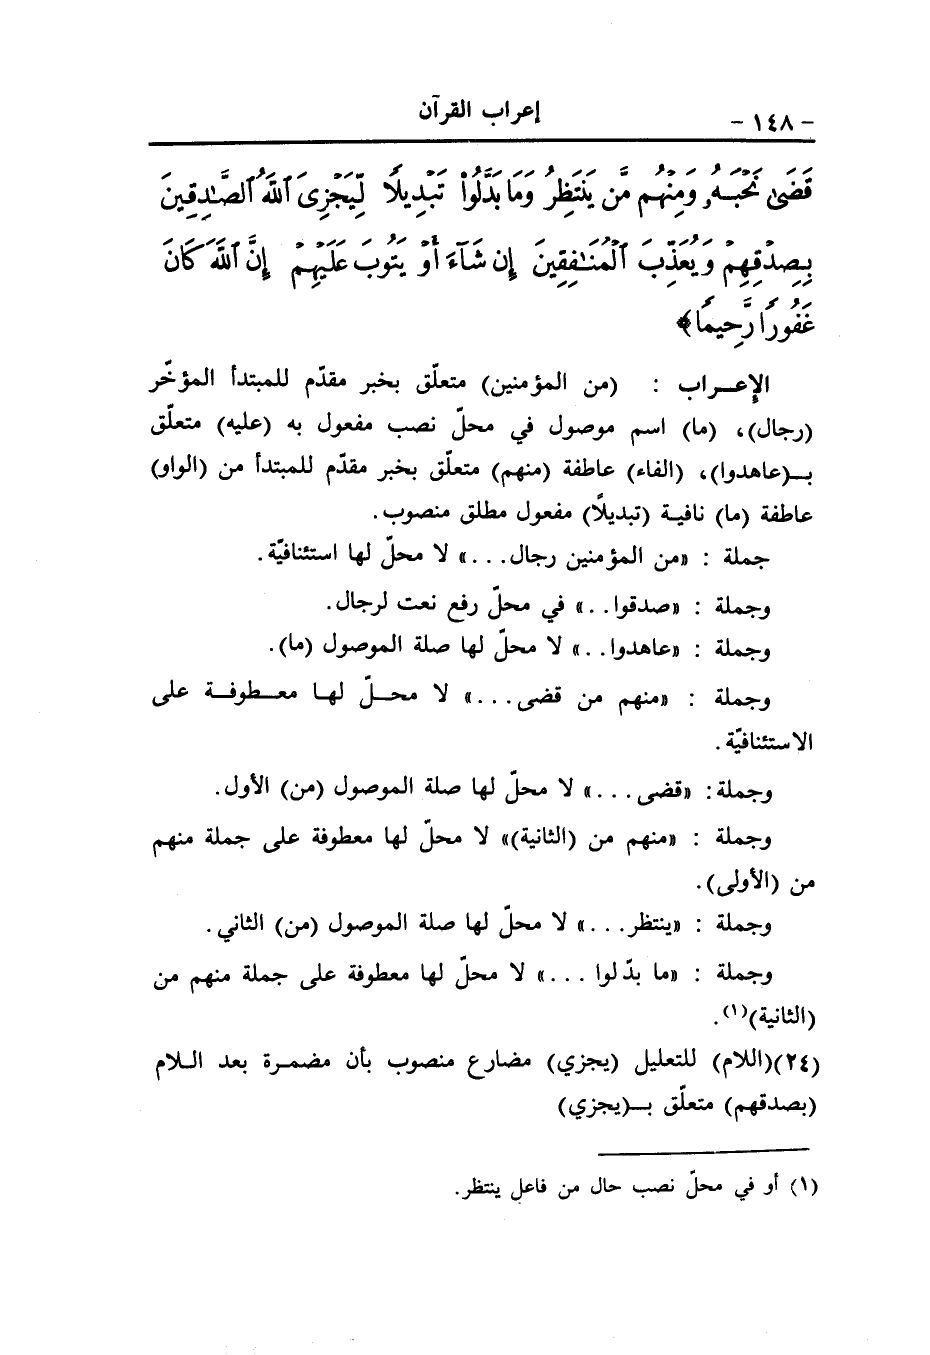 - ١٤٨ - إعراب القرآن
قَضَىٰ نَحْبَهُۥ وَمِنْهُم مَّن يَنتَظِرُ وَمَا بَدَّلُوا۟ تَبْدِيلًا لِّيَجْزِىَ ٱللَّهُ ٱلصَّـٰدِقِينَ
بِصِدْقِهِمْ وَيُعَذِّبَ ٱلْمُنَـٰفِقِينَ إِن شَآءَ أَوْ يَتُوبَ عَلَيْهِمْ إِنَّ ٱللَّهَ كَانَ
غَفُورًا رَّحِيمًا﴾
الإعـراب : (من المؤمنين) متعلّق بخبر مقدّم للمبتدأ المؤخّر
(رجال)، (ما) اسم موصول في محلّ نصب مفعول به (عليه) متعلّق
بـ(عاهدوا)، (الفاء) عاطفة (منهم) متعلّق بخبر مقدّم للمبتدأ من (الواو)
عاطفة (ما) نافية (تبديلًا) مفعول مطلق منصوب.
جملة : «من المؤمنين رجال...» لا محلّ لها استئنافيّة.
وجملة : «صدقوا..» في محلّ رفع نعت لرجال.
وجملة : «عاهدوا..» لا محلّ لها صلة الموصول (ما).
وجملة : «منهم من قضى...» لا محلّ لها معطوفة على
الاستئنافيّة.
وجملة: «قضى...» لا محلّ لها صلة الموصول (من) الأول.
وجملة : «منهم من (الثانية)» لا محلّ لها معطوفة على جملة منهم
من (الأولى).
وجملة : «ينتظر...» لا محلّ لها صلة الموصول (من) الثاني.
وجملة : «ما بدّلوا ...» لا محلّ لها معطوفة على جملة منهم من
(الثانية)(١).
(٢٤)(اللام) للتعليل (يجزي) مضارع منصوب بأن مضمرة بعد اللام
(بصدقهم) متعلّق بـ(يجزي)
(١) أو في محلّ نصب حال من فاعل ينتظر.